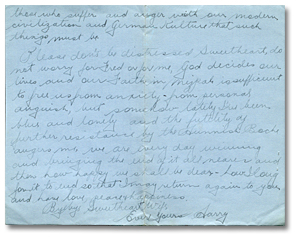 those who suffer and anger with our modern
civilization and German Kultur that such
things must be
Please don't be distressed Sweetheart, do
not worry or fred over me God decides our
lives and our Faith in is sufficient
to free us from anxiety - from personal
anguish, but somehow lately I've been
blue and lonely and the futility of
further resistance by the Boche
angers me we are every day winning
and bringing the end of it all nearer and
then how happy we shall be dear - how I long
for it to end so that I may return again to you
and home love
Bye bye Sweetheart
Ever Yours Harry